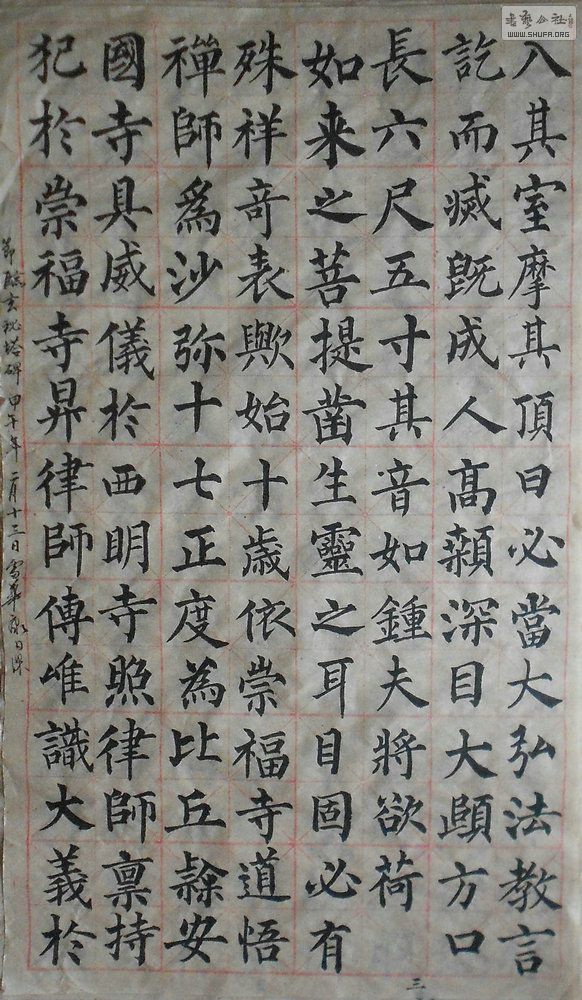 書藝公社
WWW.SHUFA.ORG
入其室摩其頂曰必當大弘法教言
訖而滅既成人高顙深目大頤方口
長六尺五寸其音如鍾夫將欲荷
如来之菩提凿生靈之耳目固必有
殊祥奇表歟始十歳依崇福寺道悟
禪師爲沙弥十七正度為比丘隸安
國寺具威儀於西明寺照律師禀持
犯於崇福寺昇律師傳唯識大義於
节臨玄秘塔碑 甲午年 二月十三日 雪華 日课
三